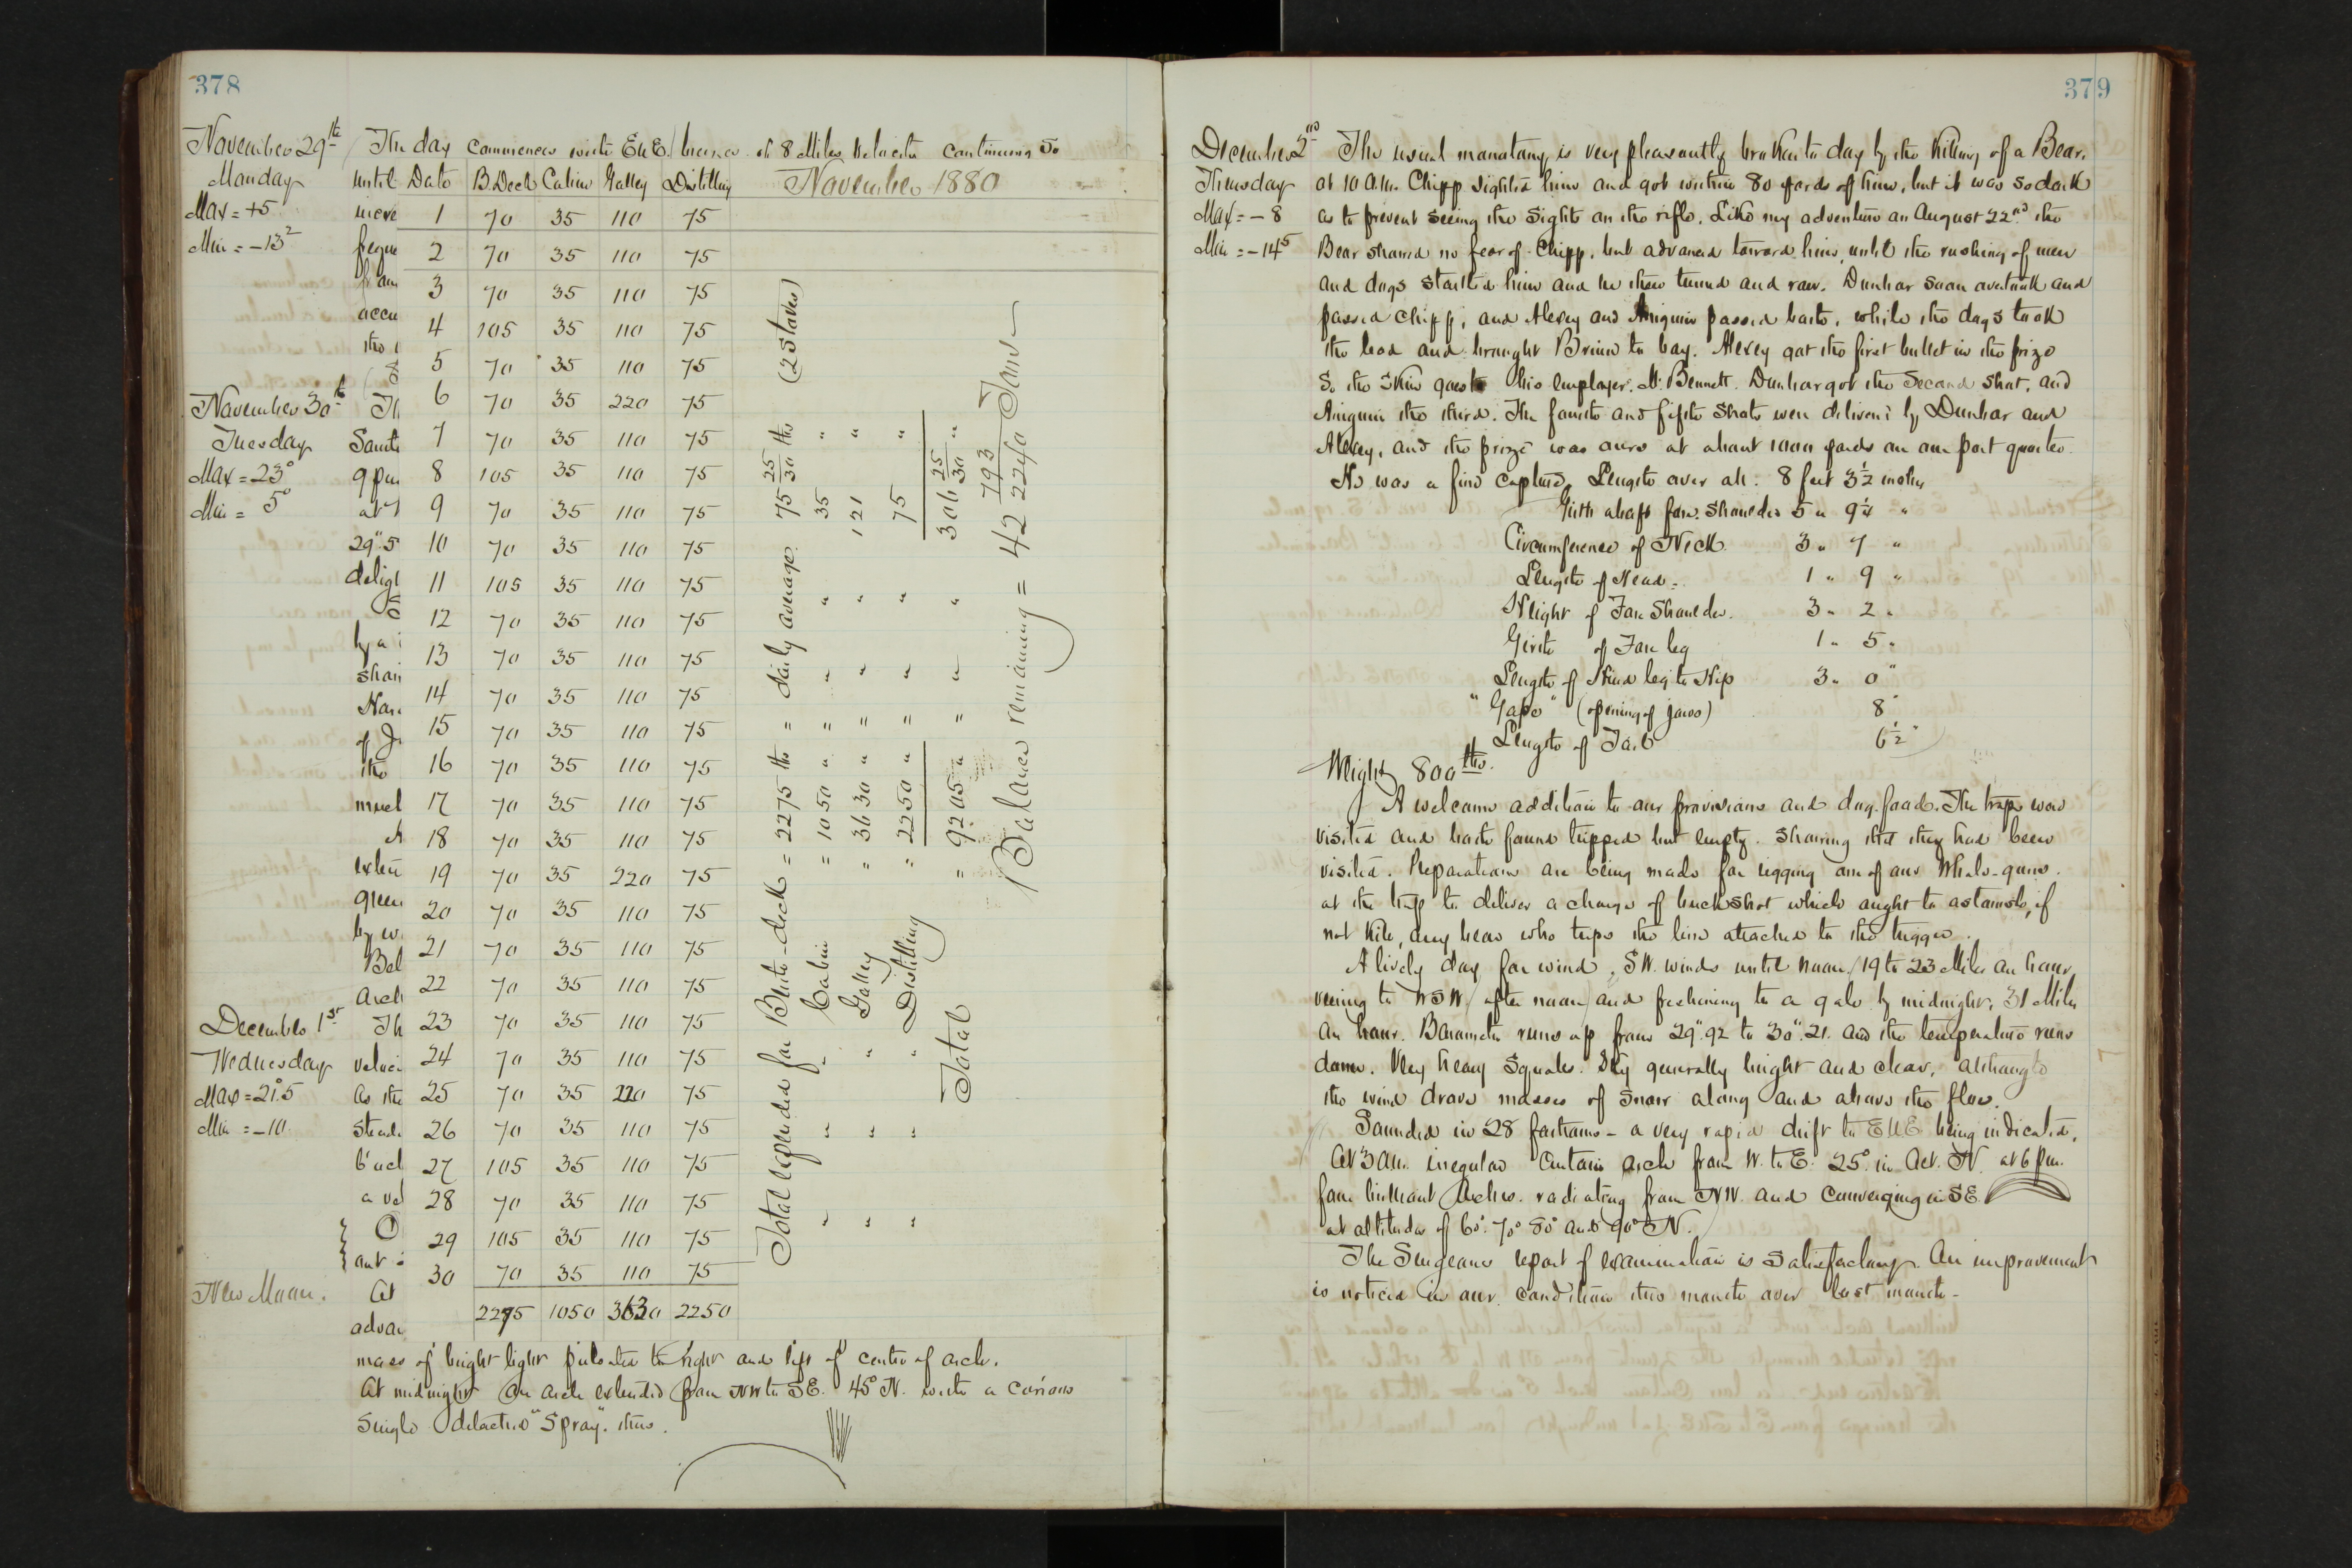 378
November 29th The day commences with ENE breeze of 8 Miles velocity continuing so
Monday until
Max = +5
Min = -13²
Date B.Deck Cabin Galley Distilling November 1880
1 70 35 110 75
2 70 35 110 75
3 70 35 110 75
4 105 35 110 75
5 70 35 110 75
6 70 35 220 75
7 70 35 110 75
8 105 35 110 75
9 70 35 110 75
10 70 35 110 75
11 105 35 110 75
12 70 35 110 75
13 70 35 110 75
14 70 35 110 75
15 70 35 110 75
16 70 35 110 75
17 70 35 110 75
18 70 35 110 75
19 70 35 220 75
20 70 35 110 75
21 70 35 110 75
22 70 35 110 75
23 70 35 110 75
24 70 35 110 75
25 70 35 220 75
26 70 35 110 75
27 105 35 110 75
28 70 35 110 75
29 105 35 110 75
30 70 35 110 75
2275 1050 3630 2250
Total expended for Berth-deck = 2275 lbs = daily average 75 25/30 lbs (2 Stoves)
" " Cabin = 1050 " " " " 35 "
" " Galley " 3630 " " " " 121 "
" " Distilling " 2250 " " " " 75 "
Total " 9205 " " " " 306 25/30 "
Balance remaining = 42 793/2240 Tons
November 30th
Tuesday
Max = 23°
Min = 5°
December 1st
Wednesday
Max = 21°.5
Min = -10
New Moon.
mass of bright light pulsated to right and left of centre of arch.
At midnight an arch extended from NW to SE. 45° N. with a curious
single detached "Spray". thus.
379
December 2nd The usual monotony is very pleasantly broken to day by the killing of a Bear.
Thursday at 10 A.M. Chipp sighted him and got within 80 yards of him, but it was so dark
Max = -8 as to prevent seeing the sights on the rifle. Like my adventure on August 22nd the
Min = -14⁵ Bear showed no fear of Chipp, but advanced toward him, until the rushing of men
and dogs startled him and he then turned and ran. Dunbar soon overtook and
passed Chipp; and Alexey and Aniguin passed both, while the dogs took
the lead and brought Bruin to bay. Alexey got the first bullet in the prize
so the skin goes to his employer, Mr. Bennett. Dunbar got the second shot, and
Aniguin the third. The fourth and fifth shots were delivered by Dunbar and
Alexey, and the prize was ours at about 1000 yards on our port quarter.
He was a fine capture. Length over all. 8 feet 3½ inches
Girth abaft fore shoulder 5 " 9¼ "
Circumference of Neck. 3 " 7 "
Length of Head. 1 " 9 "
Height of Fore Shoulder. 3 " 2 "
Girth of Fore leg 1 " 5 "
Length of Hind leg to Hip 3 " 0 "
"Gape" (opening of jaws) 8 "
Length of Tail 6½ "
Weight 800 lbs.
A welcome addition to our provisions and dog food. The traps were
visited and both found tripped but empty. showing that they had been
visited. Preparations are being made for rigging one of our Whale-guns.
at the trap to deliver a charge of buckshot which ought to astonish, if
not kill, any bear who trips the line attached to the trigger.
A lively day for wind, SW. winds until noon (19 to 23 Miles an hour
veering to WSW (after noon) and freshening to a gale by midnight, 31 Miles
an hour. Barometer runs up from 29".92 to 30".21. and the temperature runs
down. Very heavy squalls. Sky generally bright and clear, although
the wind drove masses of snow along and above the floe.
Sounded in 28 fathoms - a very rapid drift to ENE being indicated.
At 3 AM. irregular Curtain arch from W. to E. 25° in Alt. N. at 6 pm.
four brilliant Arches. radiating from NW. and converging in SE.
at altitudes of 60°. 70° 80° and 90° N.
The Surgeons report of examination is satisfactory. An improvement
is noticed in our condition this month over last month-